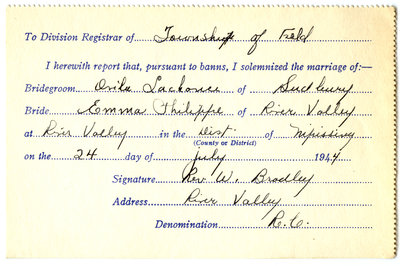 To Division Registrar of Township of Field
I herewith report that, pursuant to banns, I solemnized the marriage of:—
Bridegroom Ovila of Sudbury
Bride Emma Philippe of River Valley
at River Valley in the Dist. of Nipissing
(County or District)
on the 24 day of July 1944
Signature Rev W. Bradley
Address River Valley
Denomination R.C.